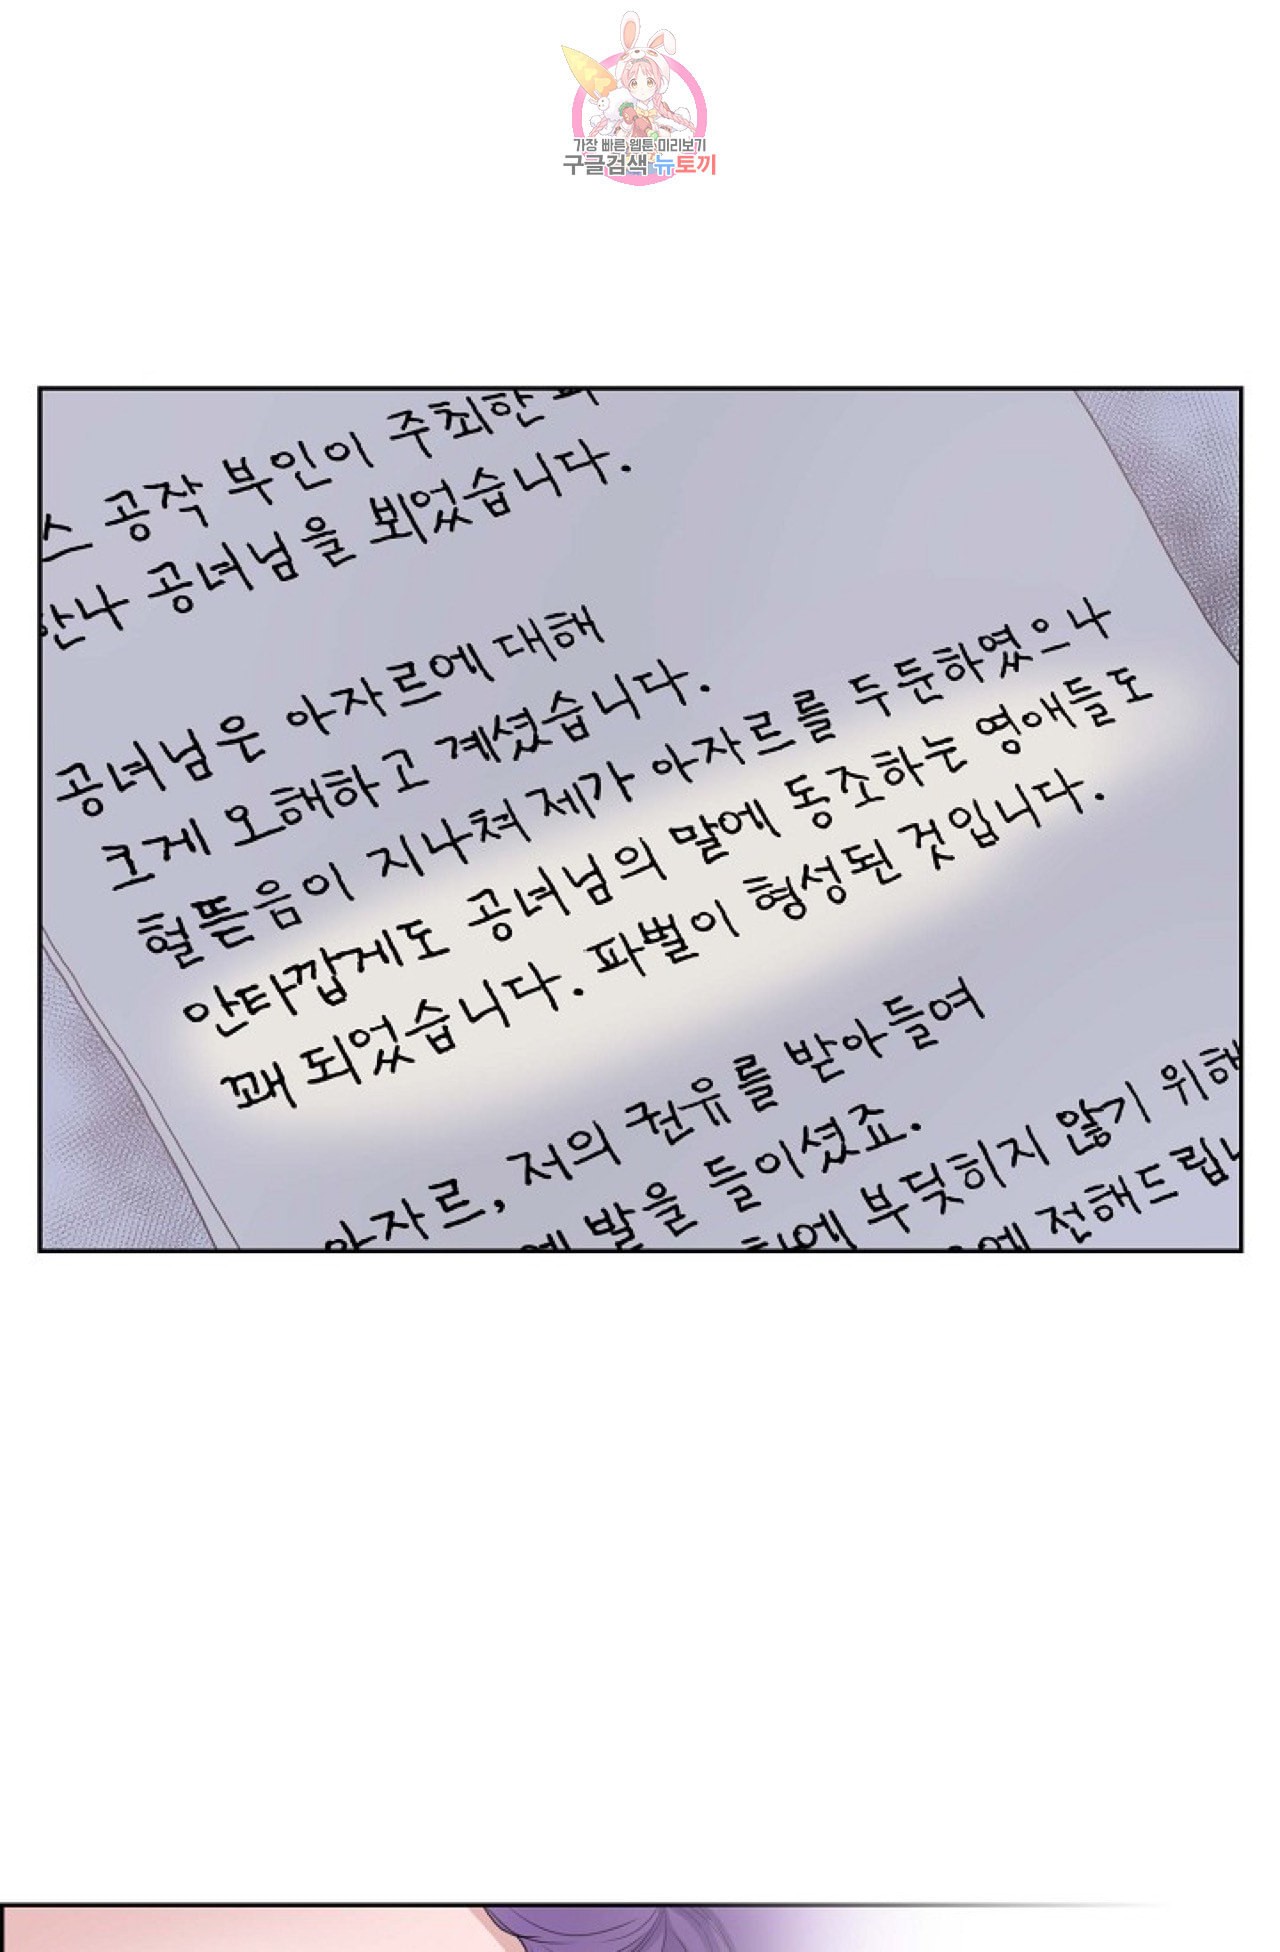 가장 빠른 웹툰 미리보기
구글검색 뉴토끼
스 공작 부인이 주최한
한나 공녀님을 뵈었습니다.
공녀님은 아자르에 대해
크게 오해하고 계셨습니다.
헐뜯음이 지나쳐 제가 아자르를 두둔하였으나
안타깝게도 공녀님의 말에 동조하는 영애들도
꽤 되었습니다. 파벌이 형성된 것입니다.
아자르, 저의 권유를 받아들여
발을 들이셨죠.
부딪히지 않기 위해
전해드립니